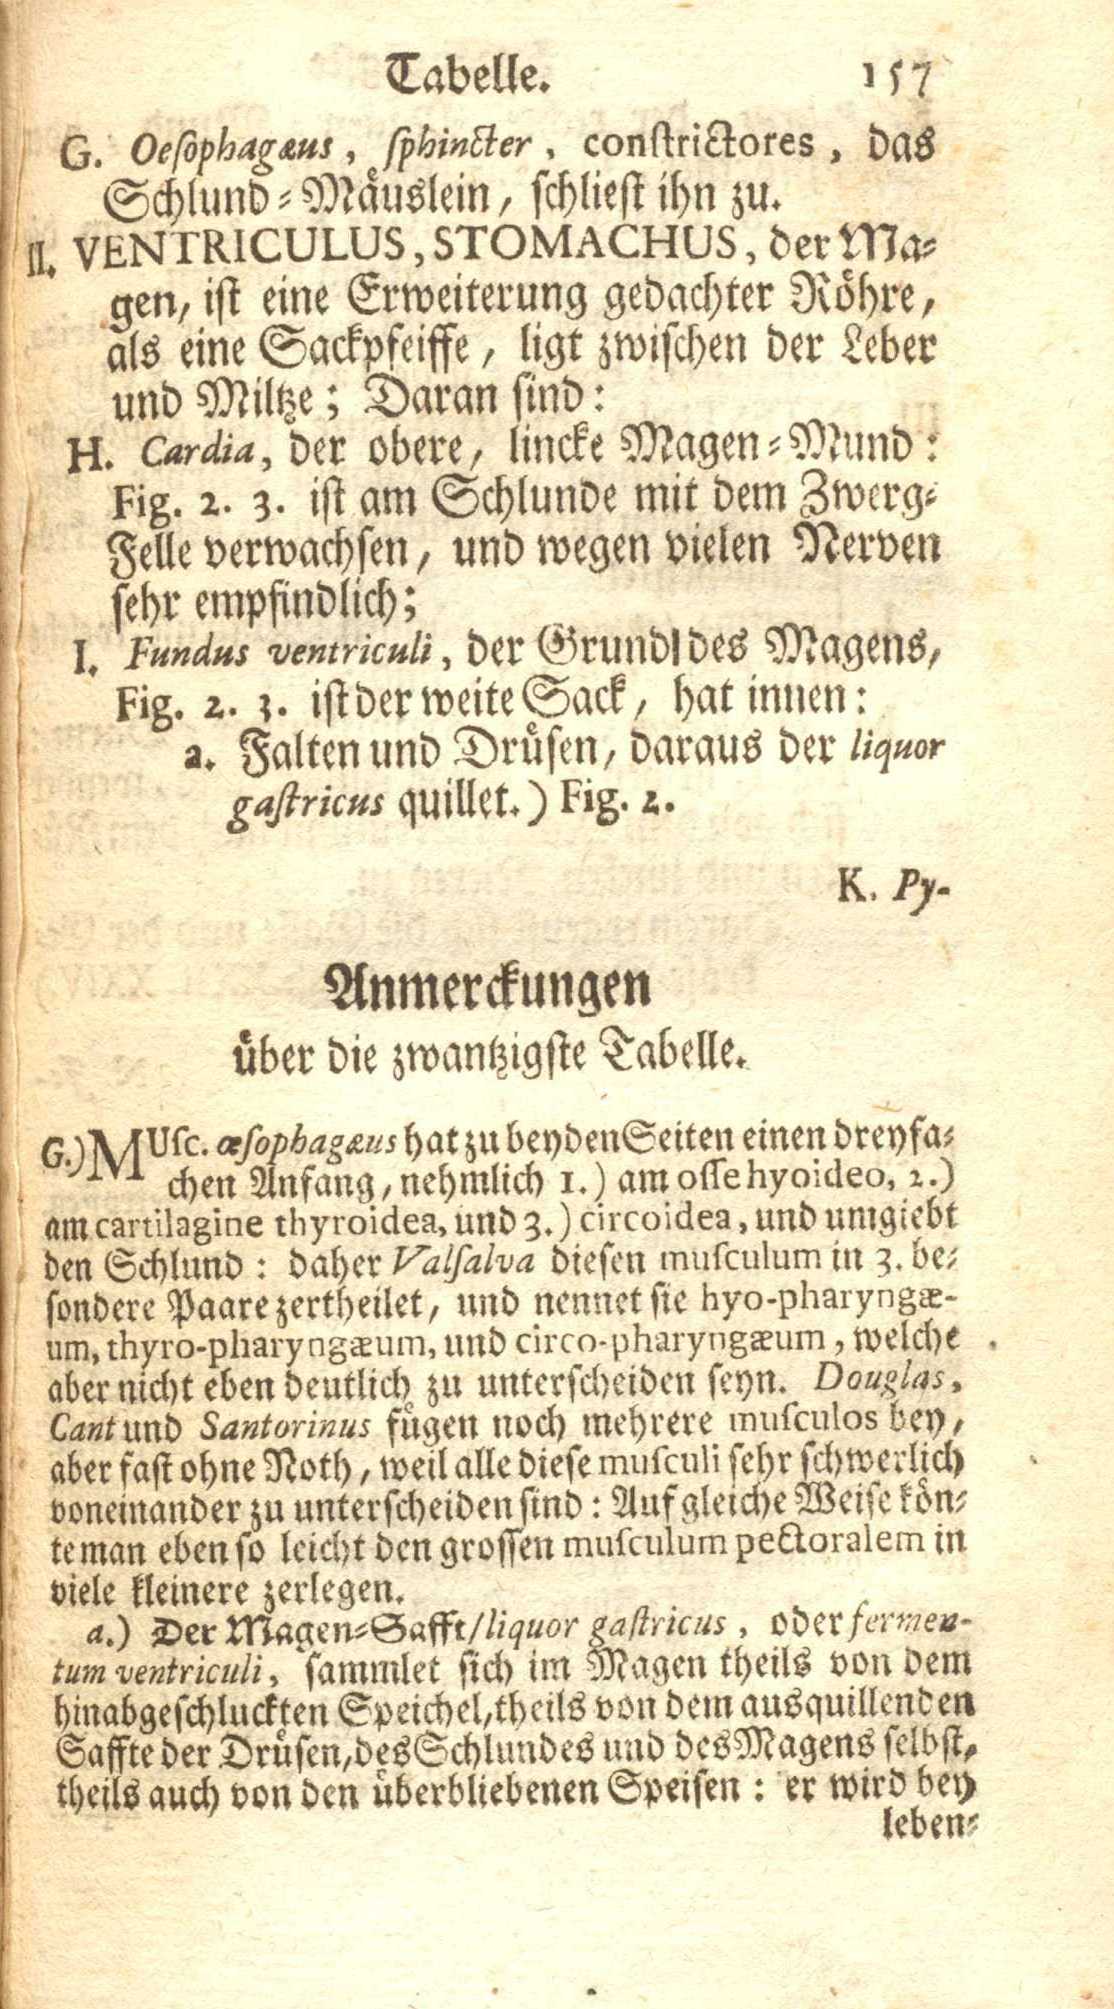 Tabelle. 157
G. Oeſophagæus, ſphincter, conſtrictores, das
Schlund-Mäuslein, ſchlieſt ihn zu.
II. VENTRICULUS, STOMACHUS, der Ma-
gen, iſt eine Erweiterung gedachter Röhre,
als eine Sackpfeiffe, ligt zwiſchen der Leber
und Miltze; Daran ſind:
H. Cardia, der obere, lincke Magen-Mund:
Fig. 2. 3. iſt am Schlunde mit dem Zwerg-
Felle verwachſen, und wegen vielen Nerven
ſehr empfindlich;
I. Fundus ventriculi, der Grund des Magens,
Fig. 2. 3. iſt der weite Sack, hat innen:
a. Falten und Drüſen, daraus der liquor
gaſtricus quillet.) Fig. 2.
K. Py-
Anmerckungen
über die zwantzigſte Tabelle.
G.) MUſc. œſophagæus hat zu beyden Seiten einen dreyfa-
chen Anfang, nehmlich 1.) am oſſe hyoideo, 2.)
am cartilagine thyroidea, und 3.) circoidea, und umgiebt
den Schlund: daher Valſalva dieſen muſculum in 3. be-
ſondere Paare zertheilet, und nennet ſie hyo-pharyngæ-
um, thyro-pharyngæum, und circo-pharyngæum, welche
aber nicht eben deutlich zu unterſcheiden ſeyn. Douglas,
Cant und Santorinus fügen noch mehrere muſculos bey,
aber faſt ohne Noth, weil alle dieſe muſculi ſehr ſchwerlich
voneinander zu unterſcheiden ſind: Auf gleiche Weiſe kön-
te man eben ſo leicht den groſſen muſculum pectoralem in
viele kleinere zerlegen.
a.) Der Magen-Safft/ liquor gaſtricus, oder fermen-
tum ventriculi, ſammlet ſich im Magen theils von dem
hinabgeſchluckten Speichel, theils von dem ausquillenden
Saffte der Drüſen, des Schlundes und des Magens ſelbſt,
theils auch von den überbliebenen Speiſen: er wird bey
leben-